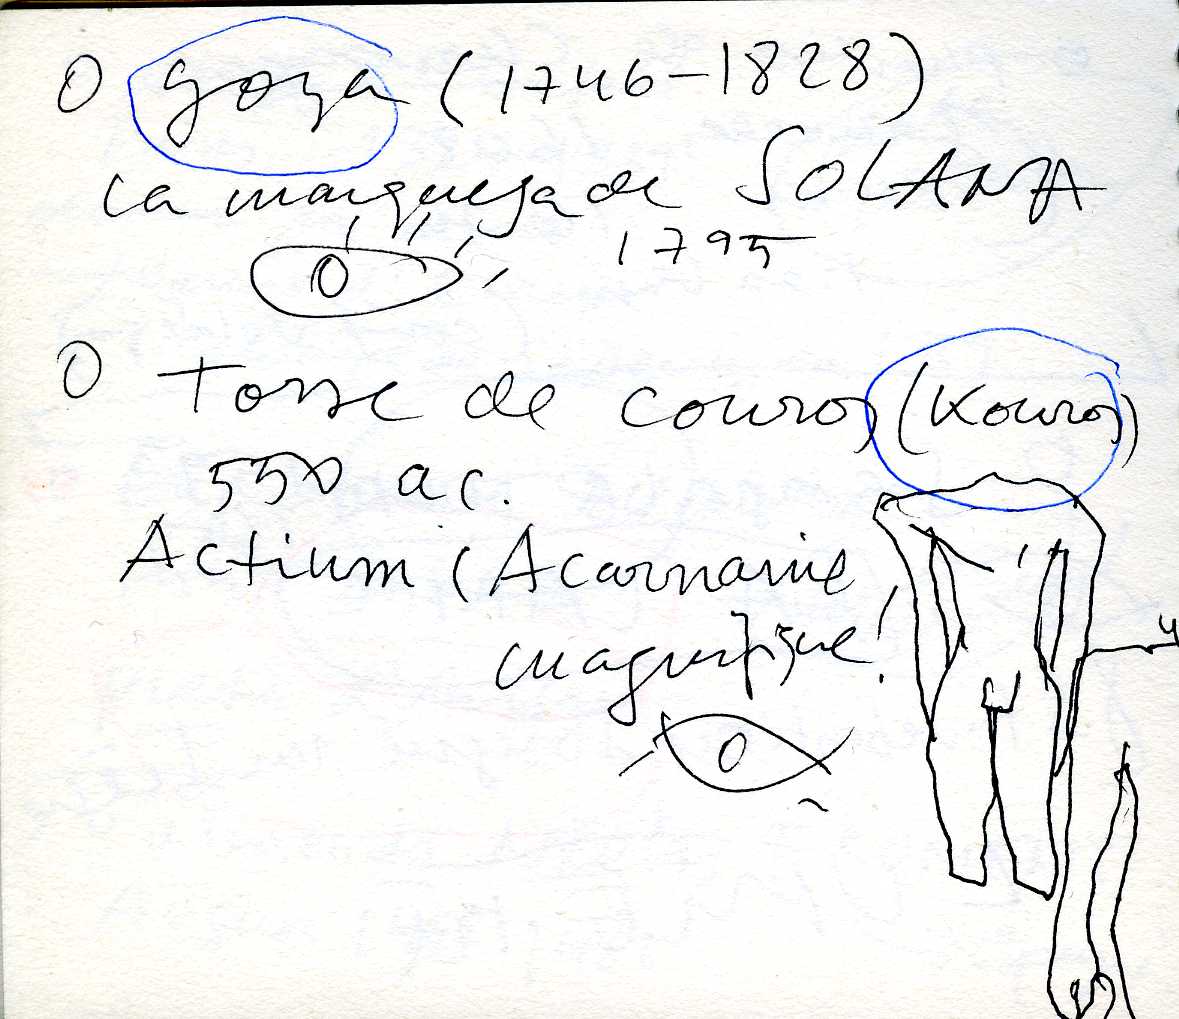 O Goya (1746-1828)
La marquesa de SOLANA
1795
O Torse de couros (Kouros)
550 ac.
Actium (Acarnanie
magnifique!